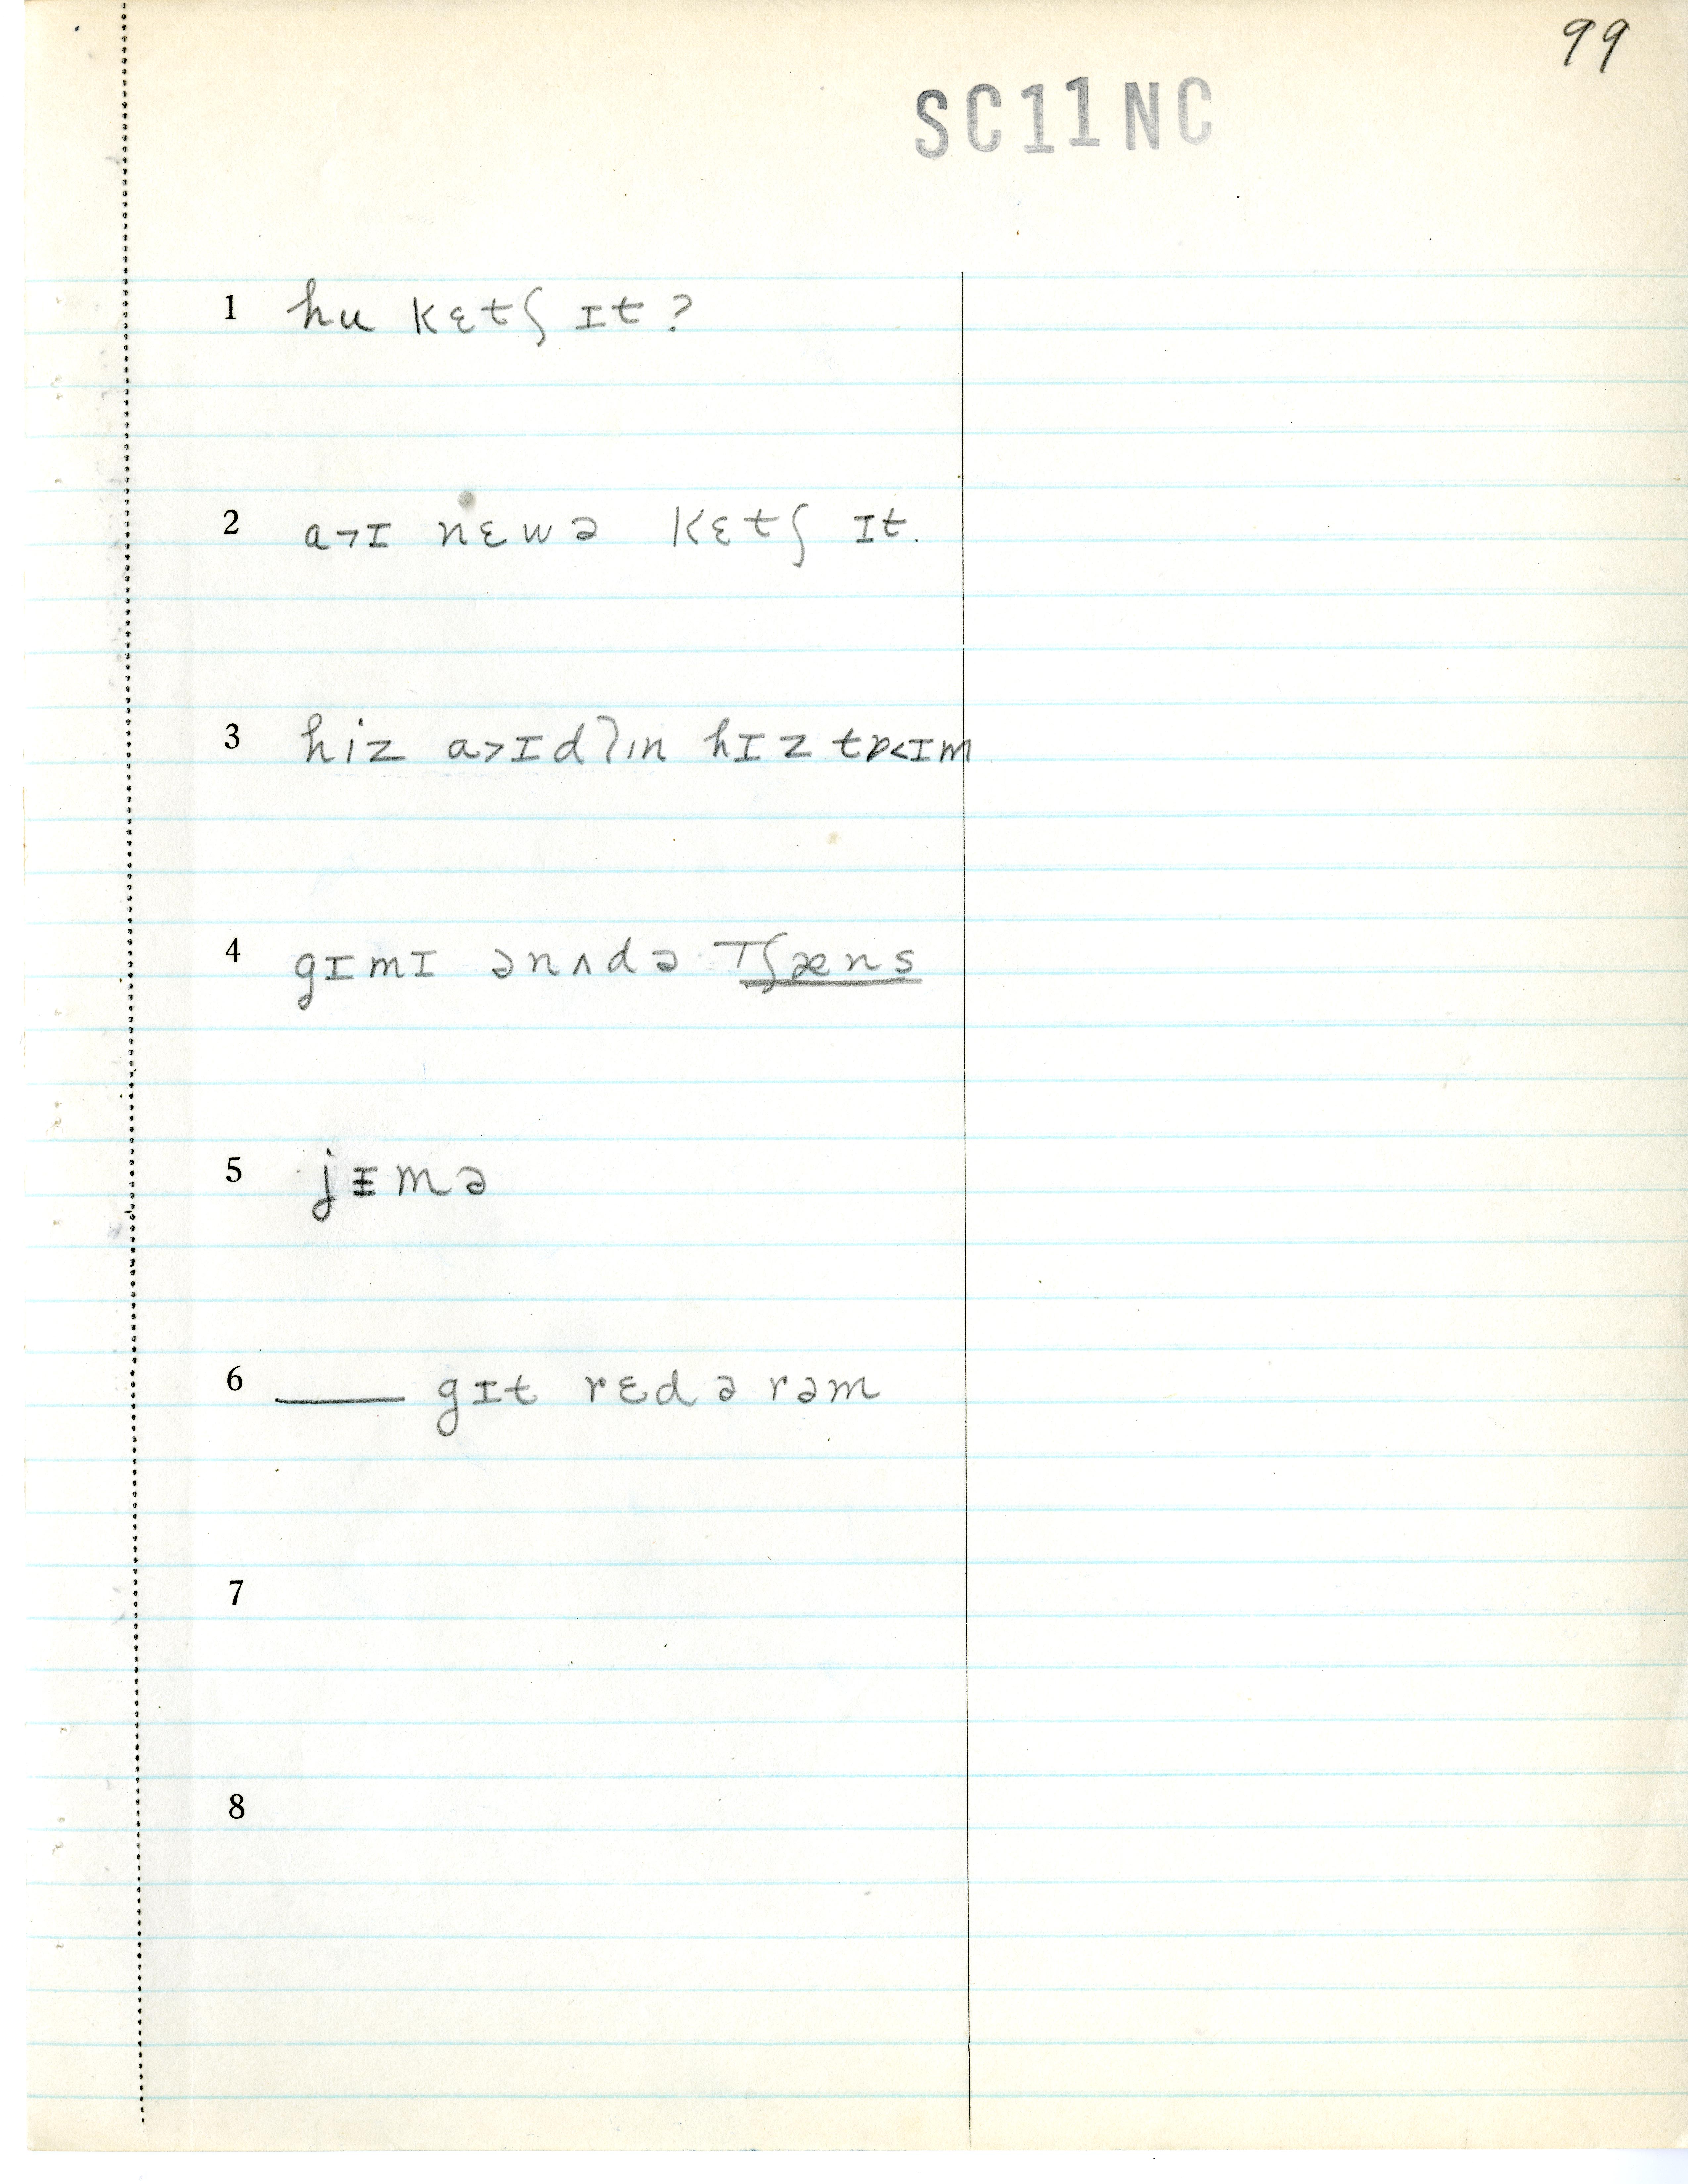 99
SC11NC
1 hu kɛtʃ ɪt?
2 a˃ɪ nɛwə kɛtʃ ɪt.
3 hiz a˃ɪdl̩ɪn hɪz tɒ˂ɪm
4 gɪmɪ ənʌdə Tʃæns
5 jɪ̵mə
6 ____ gɪt rɛdə rəm
7
8